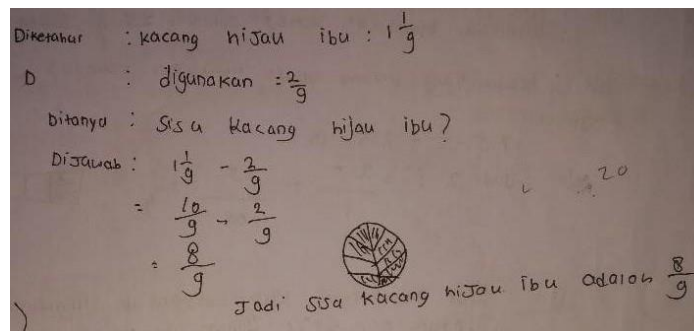 Diketahui : kacang hijau ibu : 1 1/9
D : digunakan : 2/9
Ditanya : Sisa kacang hijau ibu?
Dijawab : 1 1/9 - 2/9
= 10/9 - 2/9
= 8/9
20
Jadi sisa kacang hijau ibu adalah 8/9